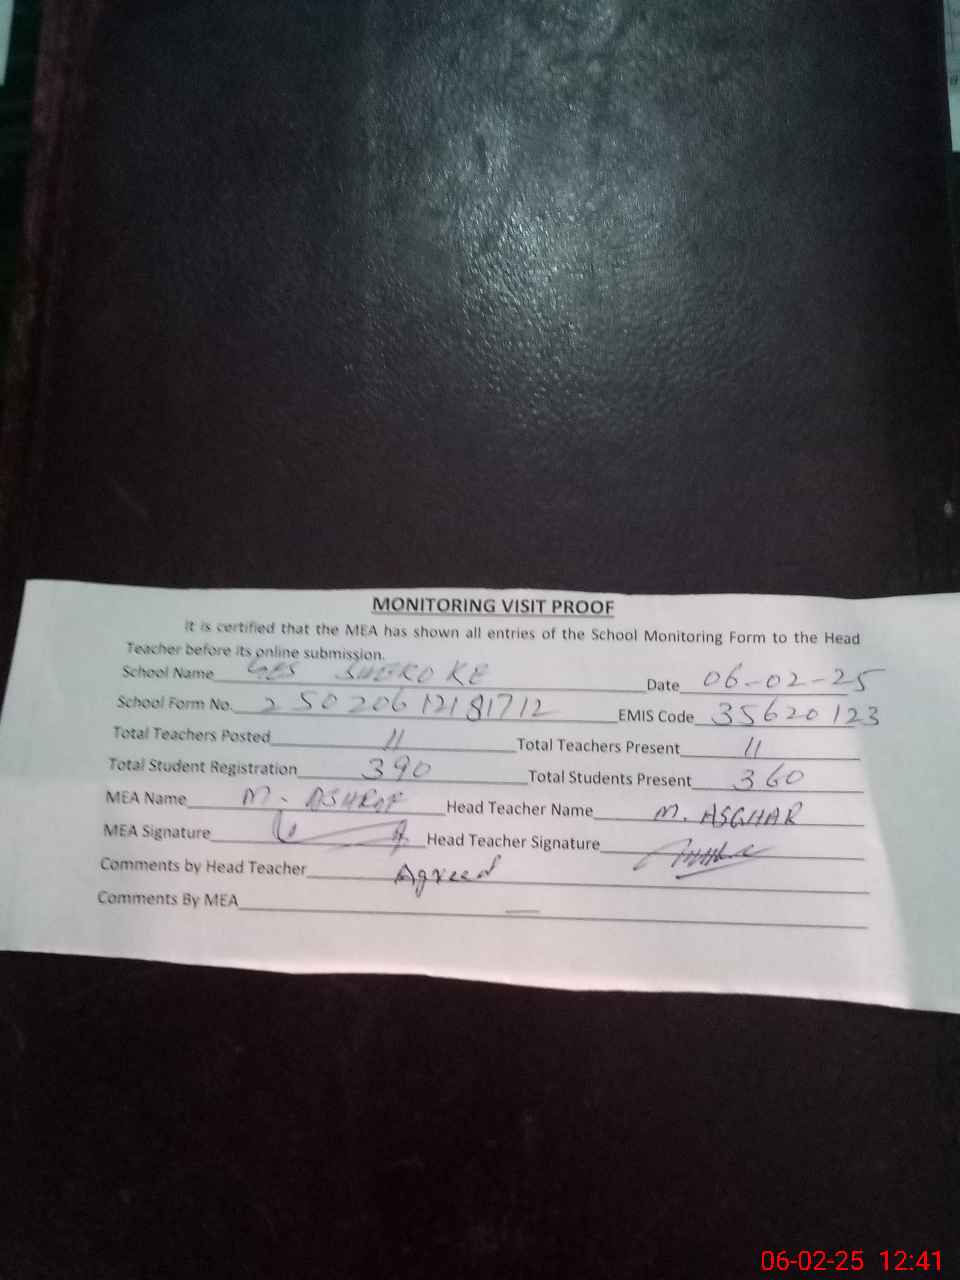 MONITORING VISIT PROOF
It is certified that the MEA has shown all entries of the School Monitoring Form to the Head
Teacher before its online submission.
School Name Date 06-02-25
School Form No. 25020612181712 EMIS Code 35620123
Total Teachers Posted 11 Total Teachers Present 11
Total Student Registration 390 Total Students Present 360
MEA Name M. ASHRAF Head Teacher Name M. ASGHAR
MEA Signature Head Teacher Signature
Comments by Head Teacher Agreed
Comments By MEA —
06-02-25 12:41